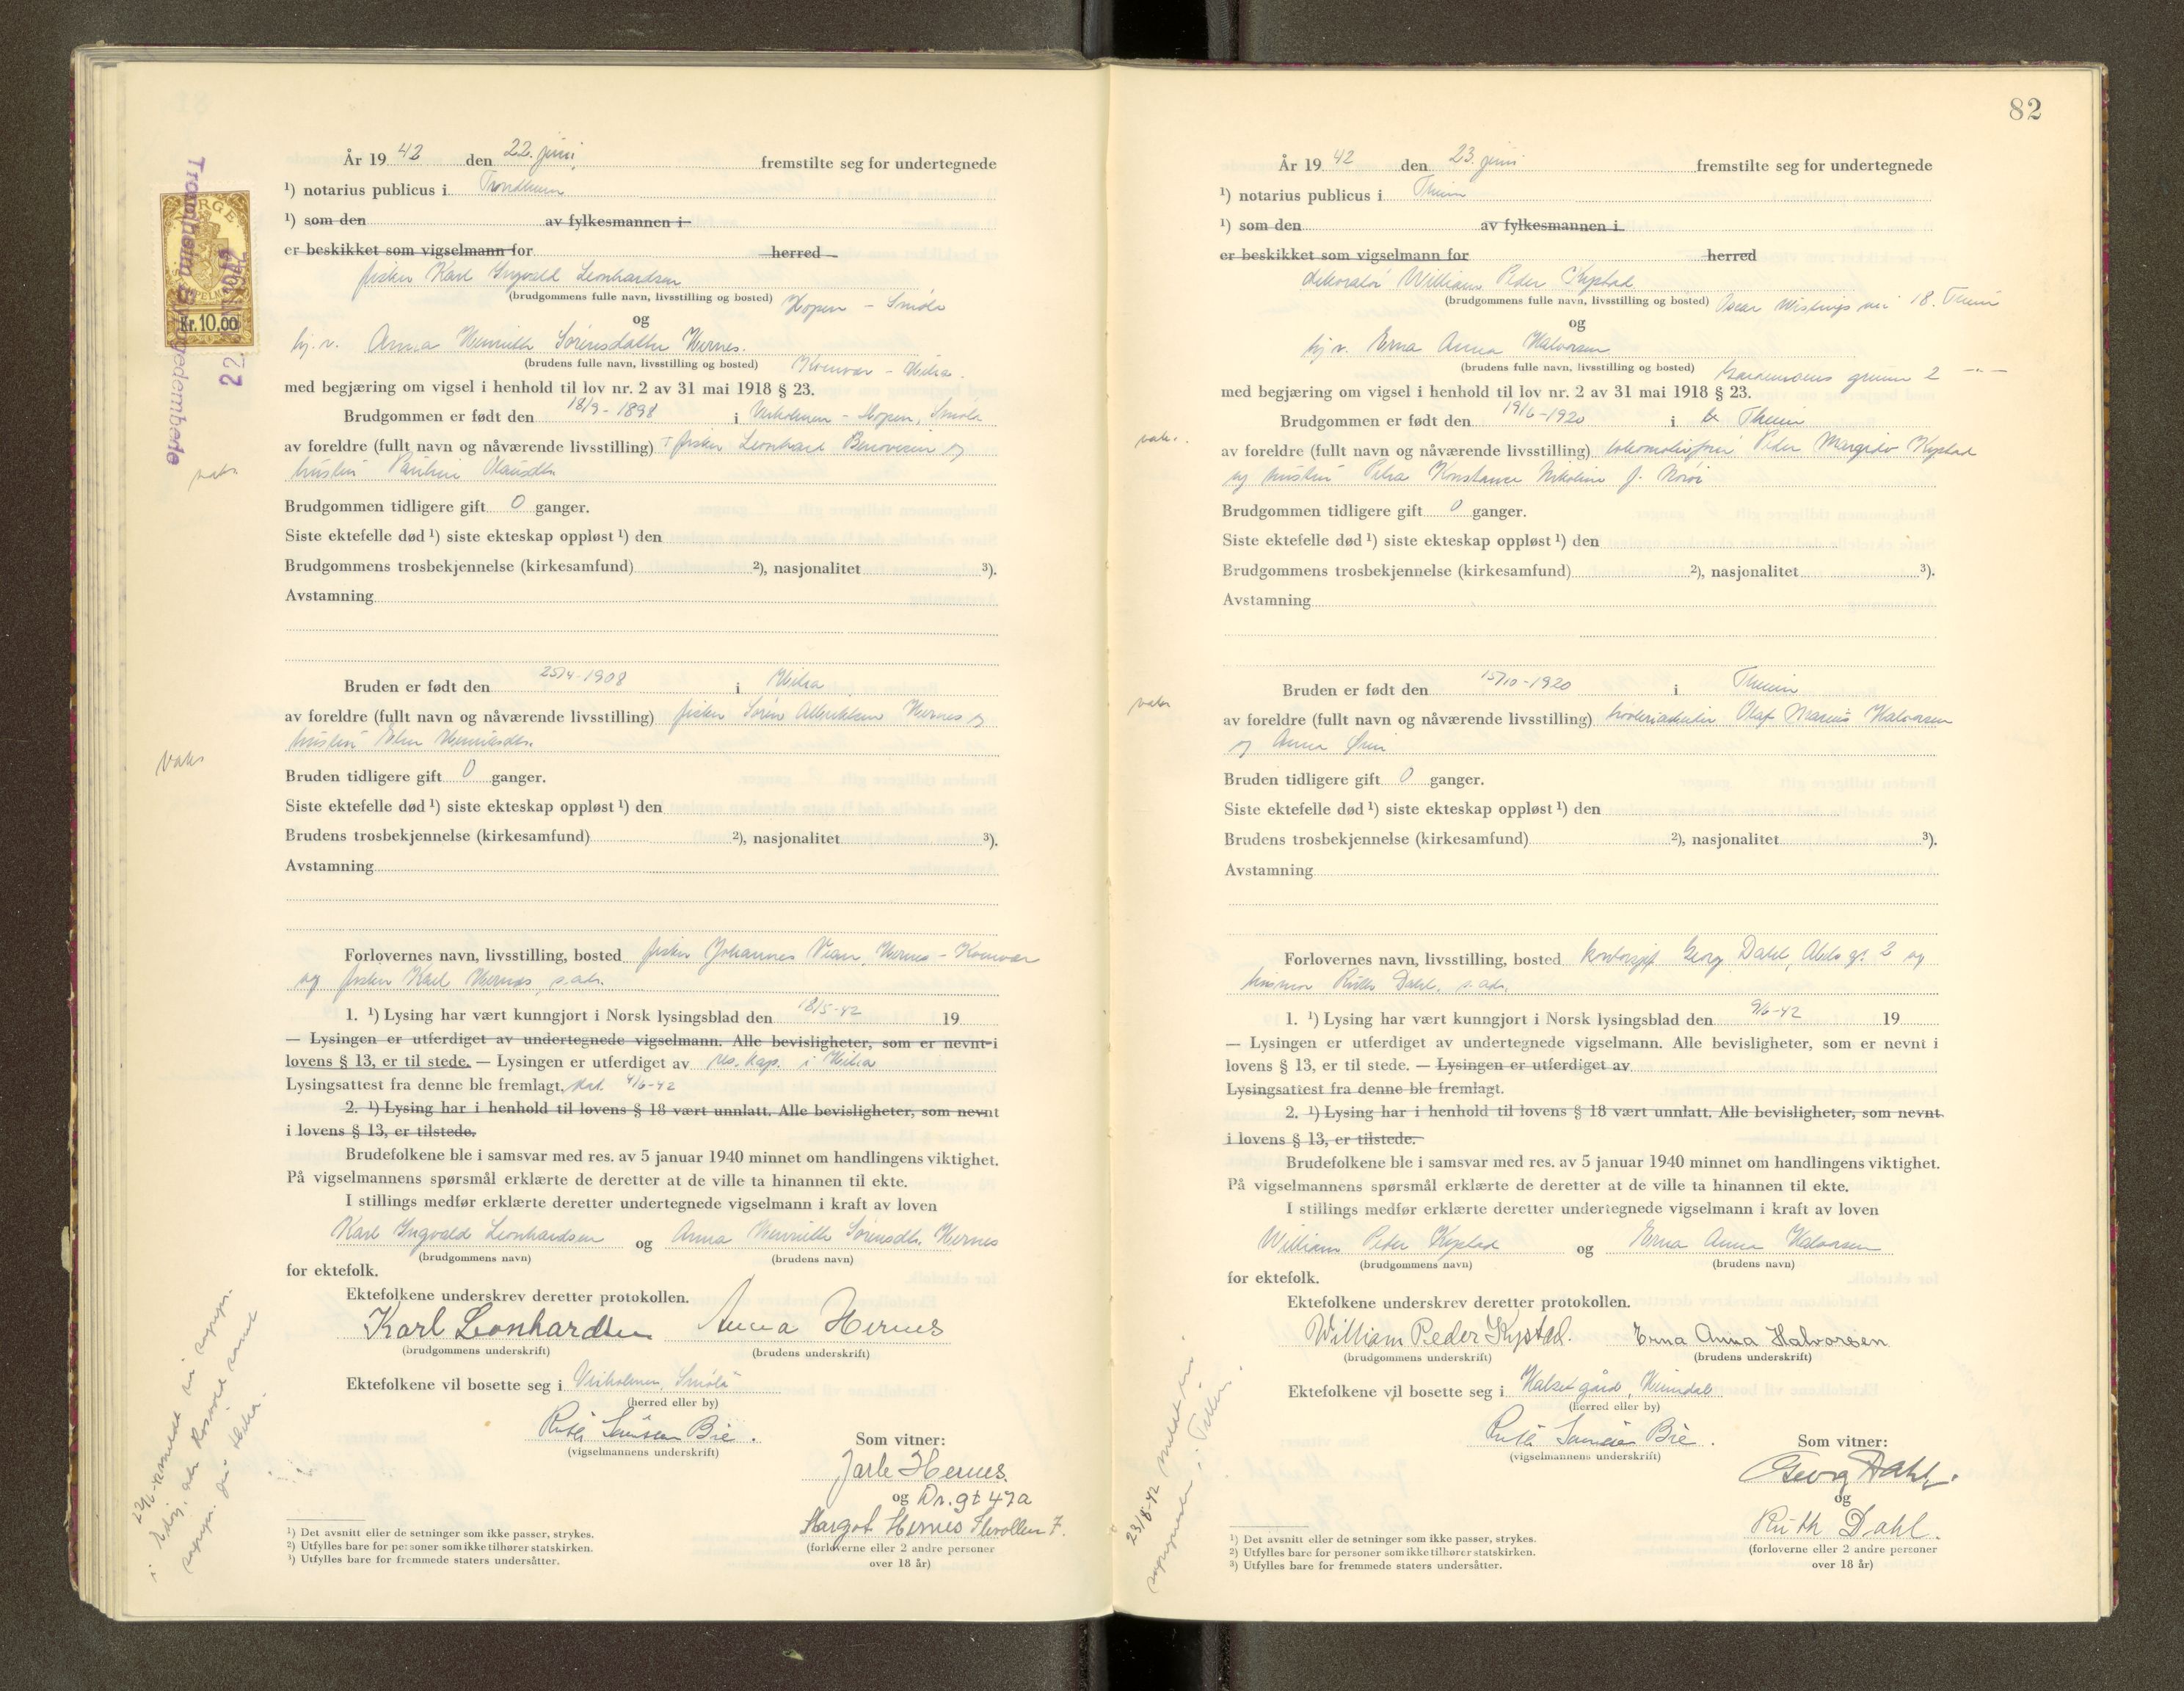 År 19 42 den 22. juni fremstilte seg for undertegnede
¹) notarius publicus i Trondheim
¹) som den av fylkesmannen i
er beskikket som vigselmann for herred
fisker Karl Ingvald Leonhardsen
(brudgommens fulle navn, livsstilling og bosted) Hopen - Smøla
og
hj.v. Anna Henritte Sørensdatter Hernes.
(brudens fulle navn, livsstilling og bosted)
med begjæring om vigsel i henhold til lov nr. 2 av 31 mai 1918 § 23.
Brudgommen er født den 18/9 - 1898 i - Hopen, Smøla
av foreldre (fullt navn og nåværende livsstilling) fisker Leonhard og
hustru Pauline
Brudgommen tidligere gift 0 ganger.
Siste ektefelle død ¹) siste ekteskap oppløst ¹) den
Brudgommens trosbekjennelse (kirkesamfund) ²), nasjonalitet ³).
Avstamning
Bruden er født den 25/4 - 1908 i Hitra
av foreldre (fullt navn og nåværende livsstilling) fisker Søren Albriktsen Hernes og
hustru
Bruden tidligere gift 0 ganger.
Siste ektefelle død ¹) siste ekteskap oppløst ¹) den
Brudens trosbekjennelse (kirkesamfund) ²), nasjonalitet ³).
Avstamning
Forlovernes navn, livsstilling, bosted fisker Johannes Hernes -
og fisker Karl Hernes, s.adr.
1. ¹) Lysing har vært kunngjort i Norsk lysingsblad den 18/5-42 19
— Lysingen er utferdiget av undertegnede vigselmann. Alle bevisligheter, som er nevnt i
lovens § 13, er til stede. — Lysingen er utferdiget av res. kap. i Hitra
Lysingsattest fra denne ble fremlagt, dat. 4/6-42
2. ¹) Lysing har i henhold til lovens § 18 vært unnlatt. Alle bevisligheter, som nevnt
i lovens § 13, er tilstede.
Brudefolkene ble i samsvar med res. av 5 januar 1940 minnet om handlingens viktighet.
På vigselmannens spørsmål erklærte de deretter at de ville ta hinannen til ekte.
I stillings medfør erklærte deretter undertegnede vigselmann i kraft av loven
Karl Ingvald Leonhardsen og Anna Henritte Sørensdtr. Hernes
(brudgommens navn) (brudens navn)
for ektefolk.
Ektefolkene underskrev deretter protokollen.
Karl Leonhardsen Anna Hernes
(brudgommens underskrift) (brudens underskrift)
Ektefolkene vil bosette seg i Smøla
(herred eller by)
Ruth Bie.
(vigselmannens underskrift)
Som vitner:
Jarle Hernes.
og Dr. gt 47a
Margot Hernes
(forloverne eller 2 andre personer
over 18 år)
¹) Det avsnitt eller de setninger som ikke passer, strykes.
²) Utfylles bare for personer som ikke tilhører statskirken.
³) Utfylles bare for fremmede staters undersåtter.
NORGE
Kr. 10.00
Trondheim Byfogedembede
vaks.
vaks
82
År 19 42 den 23. juni fremstilte seg for undertegnede
¹) notarius publicus i Theim
¹) som den av fylkesmannen i
er beskikket som vigselmann for herred
dekoratør William Peder Kystad
(brudgommens fulle navn, livsstilling og bosted) Oscar Wistings vei 18. Theim
og
hj.v. Erna Anna Halvorsen
(brudens fulle navn, livsstilling og bosted) Gardemoens grenn 2 -"-
med begjæring om vigsel i henhold til lov nr. 2 av 31 mai 1918 § 23.
Brudgommen er født den 19/6 - 1920 i Theim
av foreldre (fullt navn og nåværende livsstilling) Peder Margido Kystad
og hustru Petra Konstanse Nikoline f.
Brudgommen tidligere gift 0 ganger.
Siste ektefelle død ¹) siste ekteskap oppløst ¹) den
Brudgommens trosbekjennelse (kirkesamfund) ²), nasjonalitet ³).
Avstamning
Bruden er født den 15/10 - 1920 i Theim
av foreldre (fullt navn og nåværende livsstilling) Olaf Marius Halvorsen
og Anna
Bruden tidligere gift 0 ganger.
Siste ektefelle død ¹) siste ekteskap oppløst ¹) den
Brudens trosbekjennelse (kirkesamfund) ²), nasjonalitet ³).
Avstamning
Forlovernes navn, livsstilling, bosted kontorsjef Georg Dahl, Abels gt. 2 og
husmor Ruth Dahl, s. adr.
1. ¹) Lysing har vært kunngjort i Norsk lysingsblad den 9/6-42 19
— Lysingen er utferdiget av undertegnede vigselmann. Alle bevisligheter, som er nevnt i
lovens § 13, er til stede. — Lysingen er utferdiget av
Lysingsattest fra denne ble fremlagt.
2. ¹) Lysing har i henhold til lovens § 18 vært unnlatt. Alle bevisligheter, som nevnt
i lovens § 13, er tilstede.
Brudefolkene ble i samsvar med res. av 5 januar 1940 minnet om handlingens viktighet.
På vigselmannens spørsmål erklærte de deretter at de ville ta hinannen til ekte.
I stillings medfør erklærte deretter undertegnede vigselmann i kraft av loven
William Peder Kystad og Erna Anna Halvorsen
(brudgommens navn) (brudens navn)
for ektefolk.
Ektefolkene underskrev deretter protokollen.
William Peder Kystad. Erna Anna Halvorsen
(brudgommens underskrift) (brudens underskrift)
Ektefolkene vil bosette seg i Halset gård, Heimdal
(herred eller by)
Ruth Bie.
(vigselmannens underskrift)
Som vitner:
Georg Dahl.
og
Ruth Dahl.
(forloverne eller 2 andre personer
over 18 år)
¹) Det avsnitt eller de setninger som ikke passer, strykes.
²) Utfylles bare for personer som ikke tilhører statskirken.
³) Utfylles bare for fremmede staters undersåtter.
vaks.
vaks